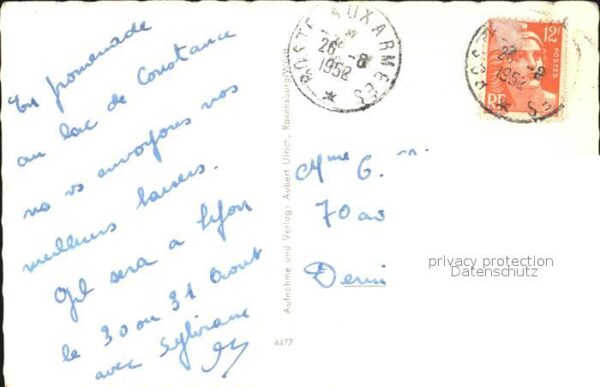 En promenade
au lac de Constance
ns vs envoyons nos
meilleurs baisers.
sera a Lyon
le 30 ou 31 Aout
avec
POSTE AUX ARMEES
26 -8
1952
12F
POSTES
RF
26 -8
1952
Mme G.
70 av
privacy protection
Datenschutz
Aufnahme und Verlag: Aubert Ulrich, Ravensburg/Wttbg.
4477